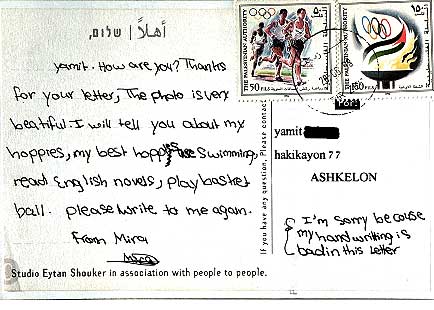 أهلاً / שלום,
yamit. How are you? Thanks
for your letter, The photo is very
beatiful. I will tell you about my
hoppies, my best hoppies are Swimming
read English novels, play basket
ball. please write to me again.
From Mira
Mira
Studio Eytan Shouker in association with people to people.
If you have any question, Please contac
THE PALESTINIAN AUTHORITY
50 FILS
THE PALESTINIAN AUTHORITY
150 FILS
yamit
hakikayon 77
ASHKELON
I'm sorry because
my handwriting is
bad in this letter